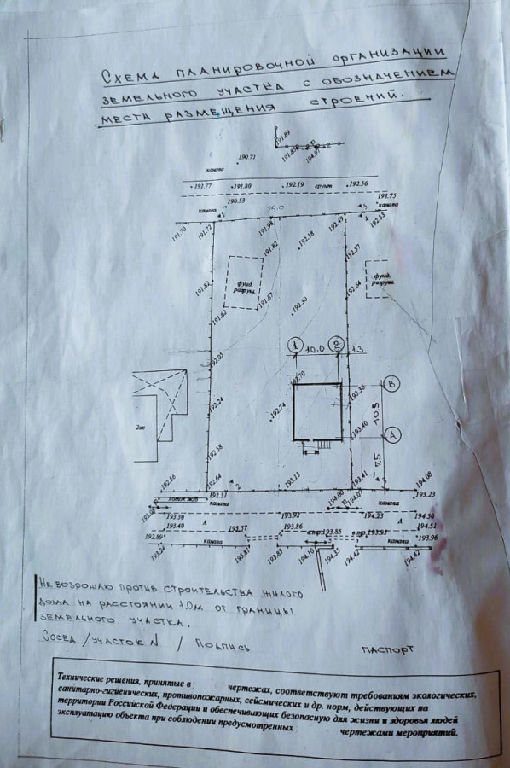 Схема планировочной организации
земельного участка с обозначением
места размещения строений.
190.71
191.77
191.80
192.19
грунт
192.56
191.75
190.59
канава
191.70
191.72
191.98
192.43
192.13
191.92
192.18
192.37
фунд.
разруш.
фунд.
разруш.
191.52
191.87
192.51
192.03
1
2
10.0
4.3
В
192.74
192.24
10.5
193.40
А
7.5
192.38
192.16
192.64
193.11
193.41
194.00
193.23
193.17
канава
193.58
193.92
194.23
194.30
193.40
Д
193.37
193.86
193.85
193.91
Д
194.51
канава
канава
193.96
193.81
194.10
194.42
194.42
Не возрожаю против строительства жилого
дома на расстоянии м от границы
земельного участка.
Сосед / участок N / Подпись
паспорт
Технические решения, принятые в чертежах, соответствуют требованиям экологических,
санитарно-гигиенических, противопожарных, сейсмических и др. норм, действующих на
территории Российской Федерации и обеспечивающих безопасную для жизни и здоровья людей
эксплуатацию объекта при соблюдении предусмотренных чертежами мероприятий.